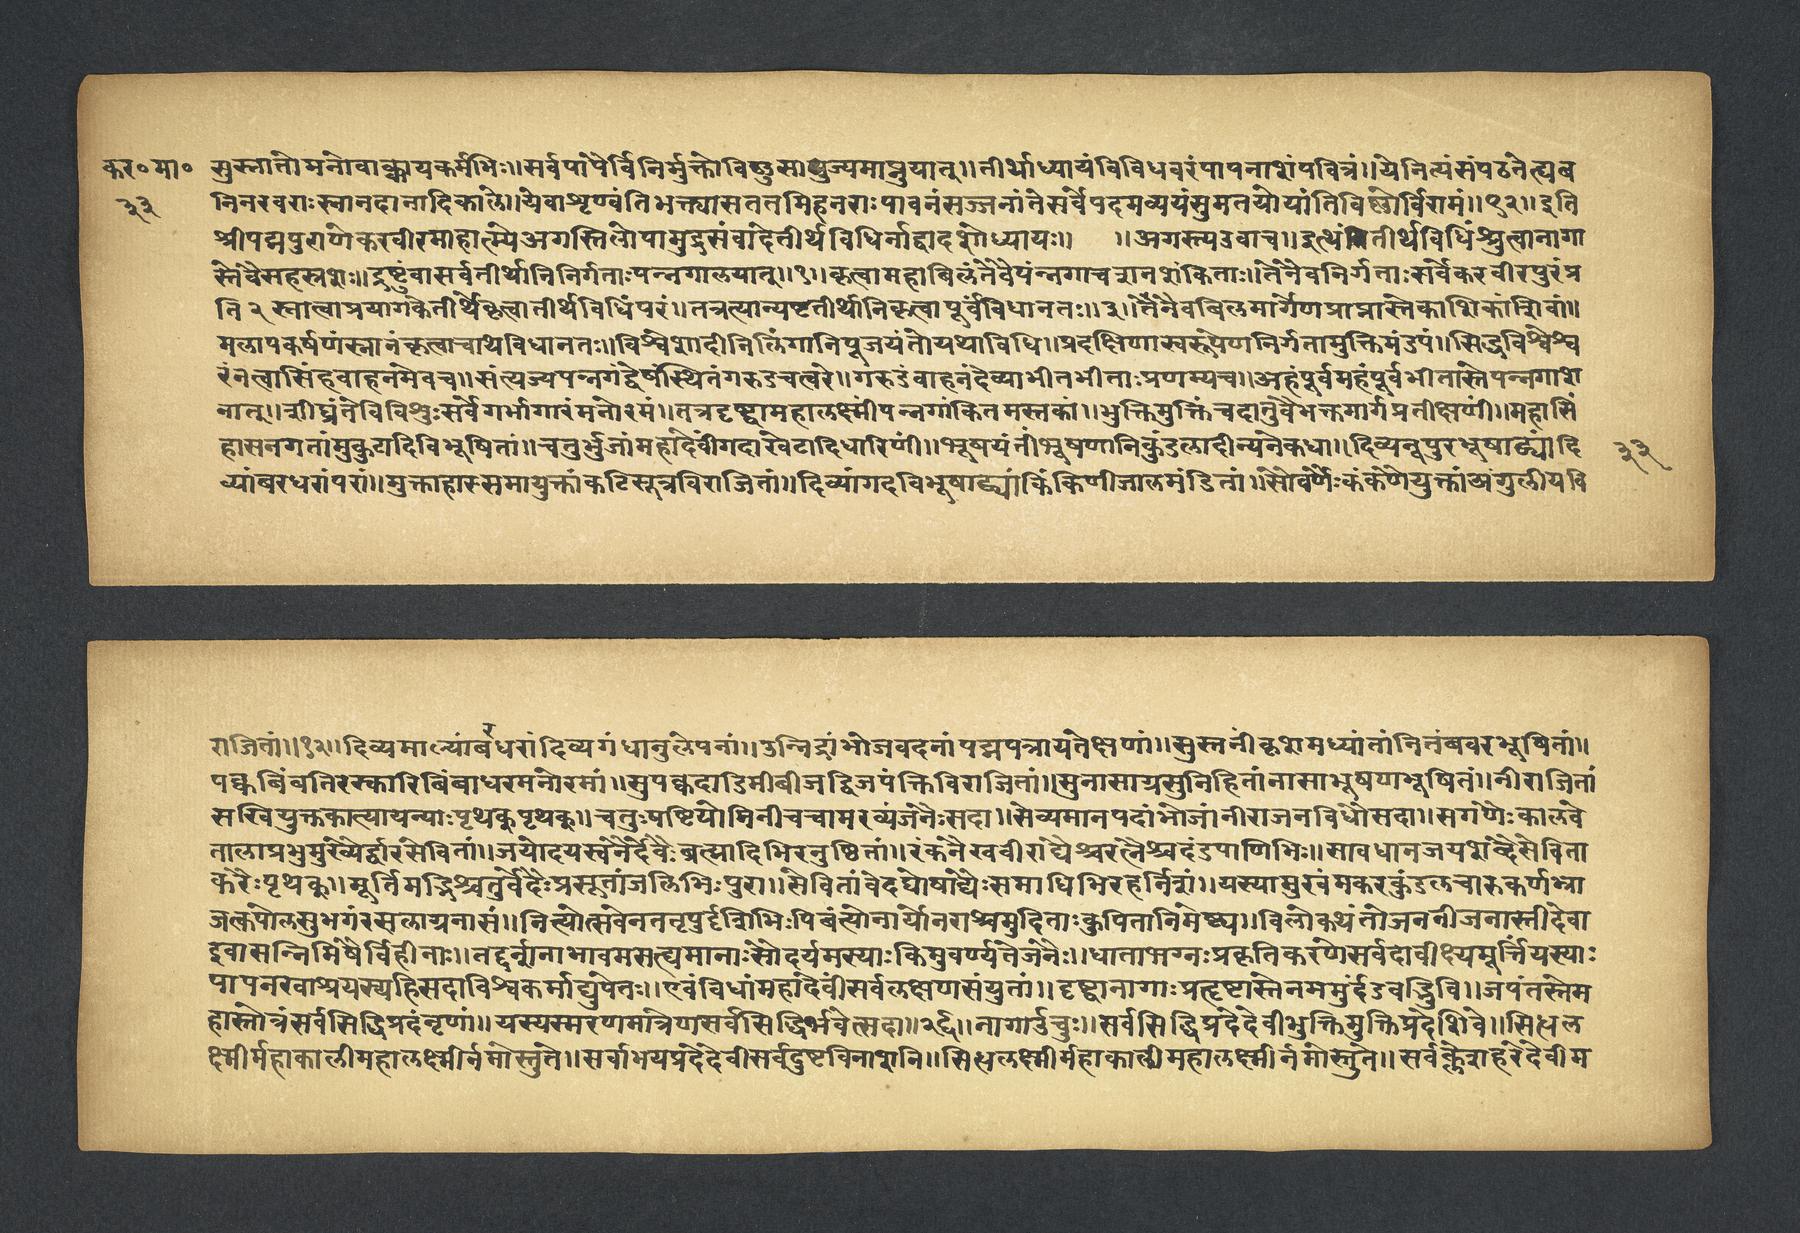 कर॰मा॰
३३
सुस्नातोमनोवाक्कायकर्मभिः॥सर्वपापैर्विनिर्मुक्तोविष्णुसायुज्यमाप्नुयात्॥तीर्थाध्यायंविविधवरंपापनाशंपवित्रं॥येनित्यंसंपठनेत्यब
निनरवराःस्नानदानादिकाले॥येवाशृण्वंतिभक्त्यासततमिहनराःपावनंसज्जनांतेसर्वेपदमव्ययंसुमतयोयांतिविष्णोर्विरामं॥१२॥इति
श्रीपद्मपुराणेकरवीरमाहात्म्येअगस्तिलोपामुद्रासंवादेतीर्थविधिर्नाद्वादशोध्यायः॥ ॥अगस्त्यउवाच॥इत्थंतीर्थविधिंश्रुत्वानागा
स्तेवैसहस्रशः॥द्रष्टुंवासर्वतीर्थानिनिर्गताःपन्नगालयात्॥१॥कृत्वामहाबिलंतेवैपंन्नगाचरानशंकिताः॥तेनेवनिर्गताःसर्वेकरवीरपुरंप्र
ति२स्नात्वाप्रयागकेतीर्थेकृत्वातीर्थविधिंपरं॥तत्रत्यान्यष्टतीर्थानिकृत्वापूर्वंविधानतः॥३॥तेनैवबिलमार्गेणप्राप्तास्तेकाशिकांशिवां॥
मलापकर्षणंस्नानंकृत्वाचाथविधानतः॥विश्वेशादीनिलिंगानिपूजयंतोयथाविधि॥प्रदक्षिणास्वरूपेणनिर्गतामुक्तिमंडपं॥सिद्धविश्वेश्व
रंनत्वासिंहवाहनमेवच॥संत्यज्यपन्नगंद्वेषंस्थितंगरुडचत्वरे॥गरुडंवाहनंदेव्याभीतभीताःप्रणम्यच॥अहंपूर्वमहंपूर्वभीतास्तेपन्नगाशे
नात्॥शीघ्रंतेविविशुःसर्वेगर्भागारंमनोरमं॥तत्रदृष्ट्वामहालक्ष्मींपन्नगांकितमस्तकां॥भुक्तिमुक्तिंचदातुंवैभक्तमार्गप्रतीक्षणीं॥महासिं
हासनगतांमुकुटादिविभूषितां॥चतुर्भुजांमहादेवींगदाखेटादिधारिणीं॥भूषयंतींभूषणानिकुंडलादीन्यनेकधा॥दिव्यनूपुरभूषाढ्यांदि
३३
व्यांबरधरांपरां॥मुक्ताहारसमायुक्तांकटिसूत्रविराजितां॥दिव्यांगदविभूषाढ्यांकिंकिणीजालमंडितां॥सौवर्णैःकंकणैयुक्तांअंगुलीयवि
राजितां॥१२॥दिव्यमाल्यांबरधरांदिव्यगंधानुलेपनां॥उन्निद्रांभोजवदनांपद्मपत्रायतेक्षणां॥सुस्तनींकृशमध्यांतांनितंबवरभूषितां॥
पक्वबिंबतिरस्कारिबिंबाधरमनोरमां॥सुपक्वदाडिमीबीजद्विजपंक्तिविराजितां॥सुनासाग्रसुनिहितांनासाभूषणभूषितं॥नीराजितां
सखियुक्तकात्यायन्याःपृथक्पृथक्॥चतुःषष्टियोगिनीचचामरव्यंजनैःसदा॥सेव्यमानपदांभोजांनीराजनविधौसदा॥सगणैःकालवे
तालाप्रभुमुख्यैर्द्वारसेवितां॥जयोदयस्वंनैर्देवैःब्रत्मादिभिरनुष्ठितां॥रंकनैरववीराद्यैश्चरत्नैश्चदंडपाणिभिः॥सावधानजयशब्दैसेविता
करैःपृथक्॥मूर्तिमद्भिश्चतुर्वेदैःप्रस्तुतांजलिभिःपुरा॥सेवितांवेदघोषाद्यैःसमाधिभिरहर्निशं॥यस्यामुखंमकरकुंडलचारुकर्णभ्रा
जत्कपोलसुभगंरसलाग्रनासं॥नित्योत्सवेनततृपुर्दृशिभिःपिबंत्योनार्योनराश्चमुदिताःकुपितानिमेष्यः॥विलोकयंतोजननीजनास्तीदेवा
इवासन्निमिषैर्विहीनाः॥तद्दर्शनाभावमसत्यमानाःसौंदर्यमस्याःकिमुवर्ण्यतेजनैः॥धाताभग्नःप्रकृतिकरणेसर्वदावीक्ष्यमूर्त्तिंयस्याः
पापनखाश्रयस्यहिसदाविश्वकर्माद्युपेतः॥एवंविधांमहादेवींसर्वलक्षणसंयुतां॥दृष्ट्वानागाःप्रहृष्टास्तेनममुर्दंडवद्भुवि॥जपंतस्तेम
हास्तोत्रंसर्वसिद्धिप्रदंनृणां॥यस्यस्मरणमात्रेणसर्वसिद्धिर्भवेत्सदा॥२६॥नागाऊचुः॥सर्वसिद्धिप्रदेदेवीभुक्तिमुक्तिप्रदेशिवे॥सिधल
क्ष्मीर्महाकालीमहालक्ष्मीर्नमोस्तुते॥सर्वाभयप्रदेदेवीसर्वदुष्टविनाशनि॥सिधलक्ष्मीर्महाकालीमहालक्ष्मीर्नमोस्तुते॥सर्वक्लेशहरेदेवीम